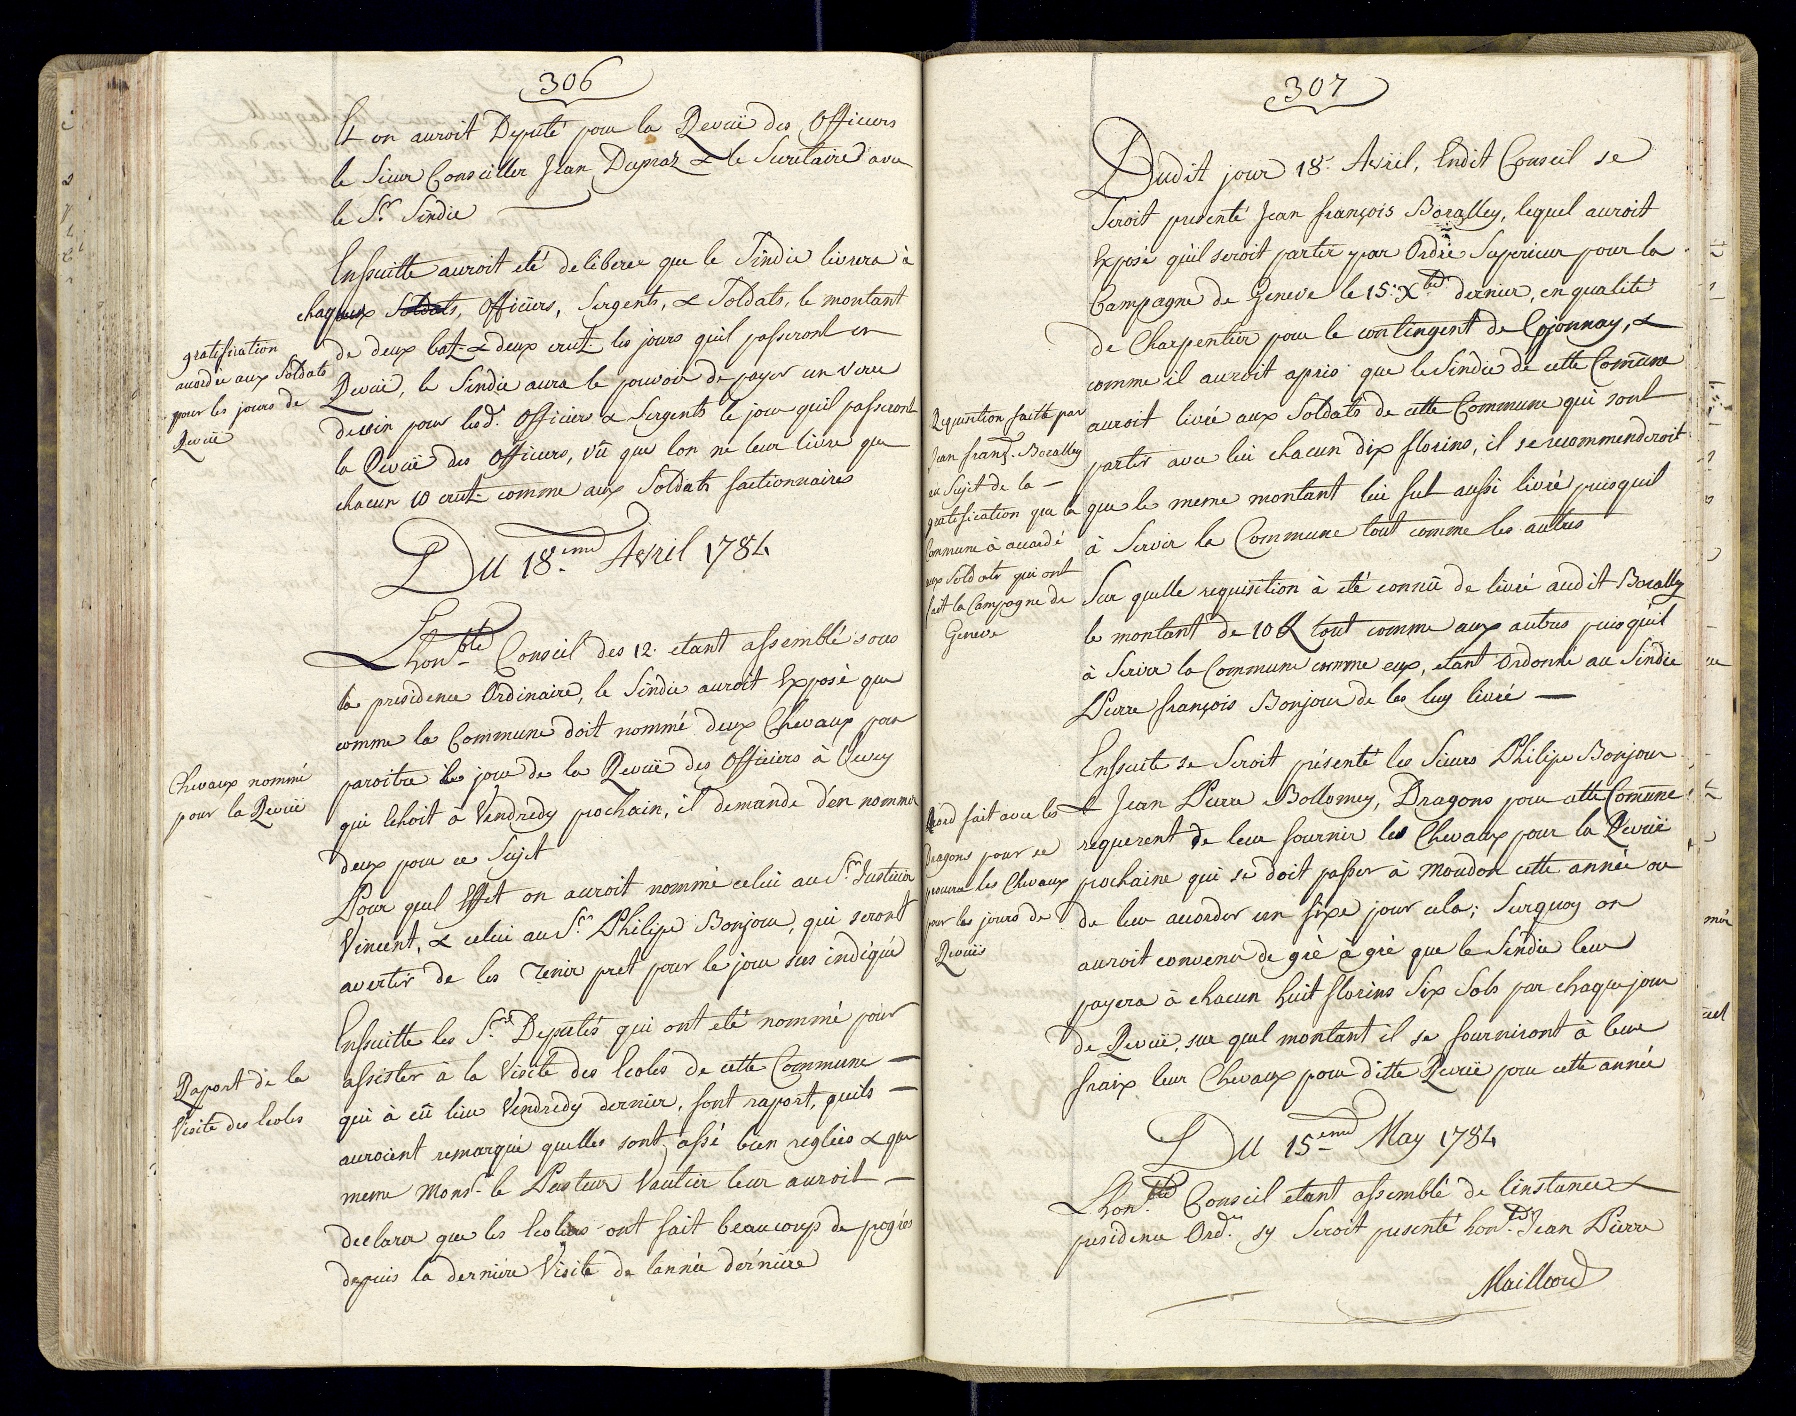 306
Et on auroit Deputé pour la Revuë des Officiers
le Sieur Conseiller Jean Dupraz & le Secretaire avec
le Sr. Sindic
Ensuitte auroit eté deliberer que le Sindic livrera à
chaqueux Soldats, Officiers, Sergents, & Soldats, le montant
de deux batz & deux crutz. les jours quil passeront en
Revuë, le Sindic aura le pouvoir de payer un verre
de vin pour lesd. Officiers & Sergents le jour quil passeront
la Revuë des Officiers, vû que lon ne leur livre que
chacun 10 crutz. comme aux Soldats factionnaires
gratification
accordée aux Soldats
pour les jours de
Revuë
Du 18eme Avril 1784
Lhonble Conseil des 12. etant assemblé sous
la presidence Ordinaire, le Sindic auroit Exposé que
comme la Commune doit nommé deux Chevaux pour
paroitre le jour de la Revuë des Officiers à Vevey
qui Echoit à Vendredy prochain, il demande d'en nommer
deux pour ce Sujet
Chevaux nommé
pour la Revuë
Pour quel Effet on auroit nommé celui au Sr. Justicier
Vincent, & celui au Sr. Philipe Bonjour, qui seront
avertir de les Tenir pret pour le jour sus indiqué
Ensuitte les Srs. Deputés qui ont eté nommé pour
assister à la Visite des Ecoles de cette Commune —
qui à eû lieu Vendredy dernier, font raport, quils —
auroient remarqué quelles sont assé bien regléés & que
meme Monsr. le Pasteur Vautier leur auroit —
declarer que les Ecoliers ont fait beaucoup de pogrés
depuis la derniere Visite de lannée derniere
Raport de la
Visite des Ecoles
307
Dudit jour 18e. Avril, Endit Conseil se
Seroit presenté Jean françois Boralley, lequel auroit
Exposé qu'il seroit partir par Ordre Superieur pour la
Campagne de Geneve le 15e. Xbre dernier, en qualité
de Charpentier pour le contingent de Cojonnay, &
comme il auroit apris que le Sindic de cette Comune
auroit livré aux Soldats de cette Commune qui sont
partir avec lui chacun dix florins, il se recommenderoit
que le meme montant lui fut aussi livré puisquil
à Servir la Commune tout comme les autres
Requisition faitte par
Jean franç. Boralley
au Sujet de la —
gratification que la
Commune à accordé
aux Soldats qui ont
fait la Campagne de
Geneve
Sur quelle requisition à eté connü de livré audit Boralley
le montant de 10 fl tout comme aux autres puisquil
à Servir la Commune comme eux, etant Ordonné au Sindic
Pierre françois Bonjour de les luy livré —
Ensuite se Seroit présenté les Sieurs Philipe Bonjour
& Jean Pierre Bollomey, Dragons pour cette Comune
requerent de leur fournir les Chevaux pour la Revuë
prochaine qui se doit passer à Moudon cette année ou
de leur accorder un fixe pour cela; Surquoy on
auroit convenu de gré à gré que le Sindic leur
payera à chacun huit florins Six Sols par chaque jour
de Revuë, sur quel montant il se fourniront à leur
fraix leur Chevaux pour ditte Revuë pour cette année
fait avec les
Dragons pour se
les Chevaux
pour les jours de
Revuës
Du 15eme May 1784
Lhonble Conseil etant assemblé de linstance &
presidence Ord. sy Seroit presenté hon. Jean Pierre
Mailleard